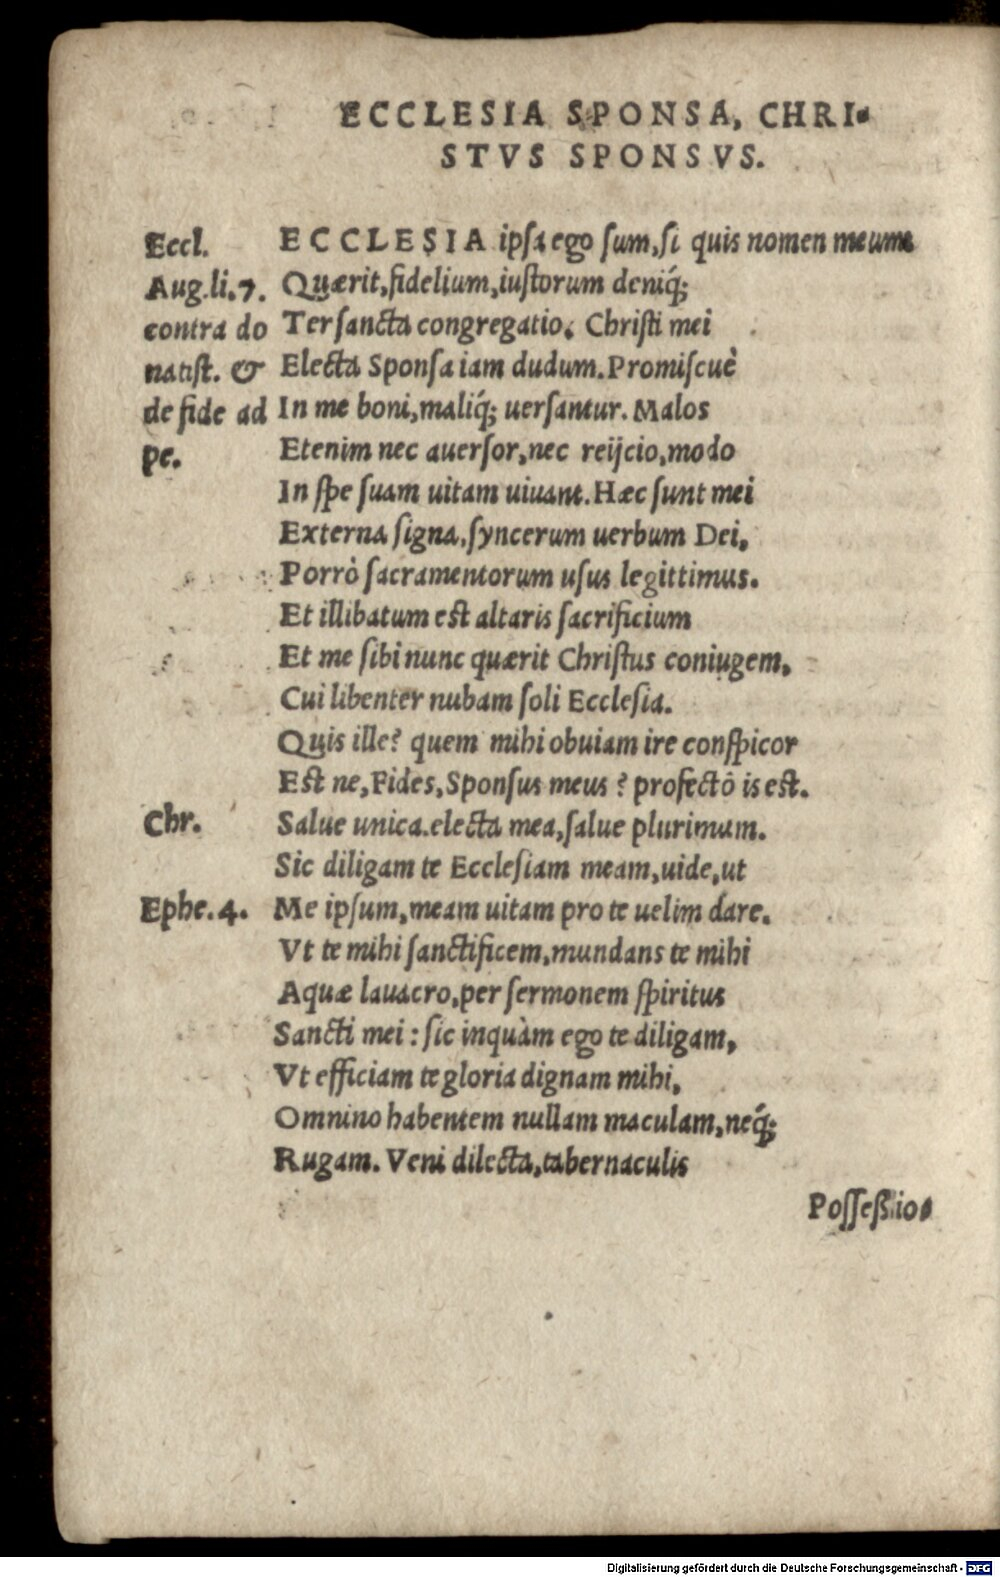 ECCLESIA SPONSA, CHRI-
STVS SPONSVS.
Eccl. ECCLESIA ipſa ego ſum, ſi quis nomen meum
Aug. li. 7. Quærit, fidelium, iuſtorum deniq́;
contra do Ter ſancta congregatio. Chriſti mei
natiſt. & Electa Sponſa iam dudum. Promiſcuè
de fide ad In me boni, maliq́; uerſantur. Malos
pe. Etenim nec auerſor, nec reijcio, modo
In ſpe ſuam uitam uiuant. Hæc ſunt mei
Externa ſigna, ſyncerum uerbum Dei,
Porrò ſacramentorum uſus legittimus.
Et illibatum est altaris ſacrificium
Et me ſibi nunc quærit Chriſtus coniugem,
Cui libenter nubam ſoli Eccleſia.
Quis ille? quem mihi obuiam ire conſpicor
Est ne, Fides, Sponſus meus? profectò is est.
Chr. Salue unica electa mea, ſalue plurimum.
Sic diligam te Eccleſiam meam, uide, ut
Ephe. 4. Me ipſum, meam uitam pro te uelim dare.
Vt te mihi ſanctificem, mundans te mihi
Aquæ lauacro, per ſermonem ſpiritus
Sancti mei: ſic inquàm ego te diligam,
Vt efficiam te gloria dignam mihi,
Omnino habentem nullam maculam, neq́;
Rugam. Veni dilecta, tabernaculis
Poſſeßio-
Digitalisierung gefördert durch die Deutsche Forschungsgemeinschaft - DFG